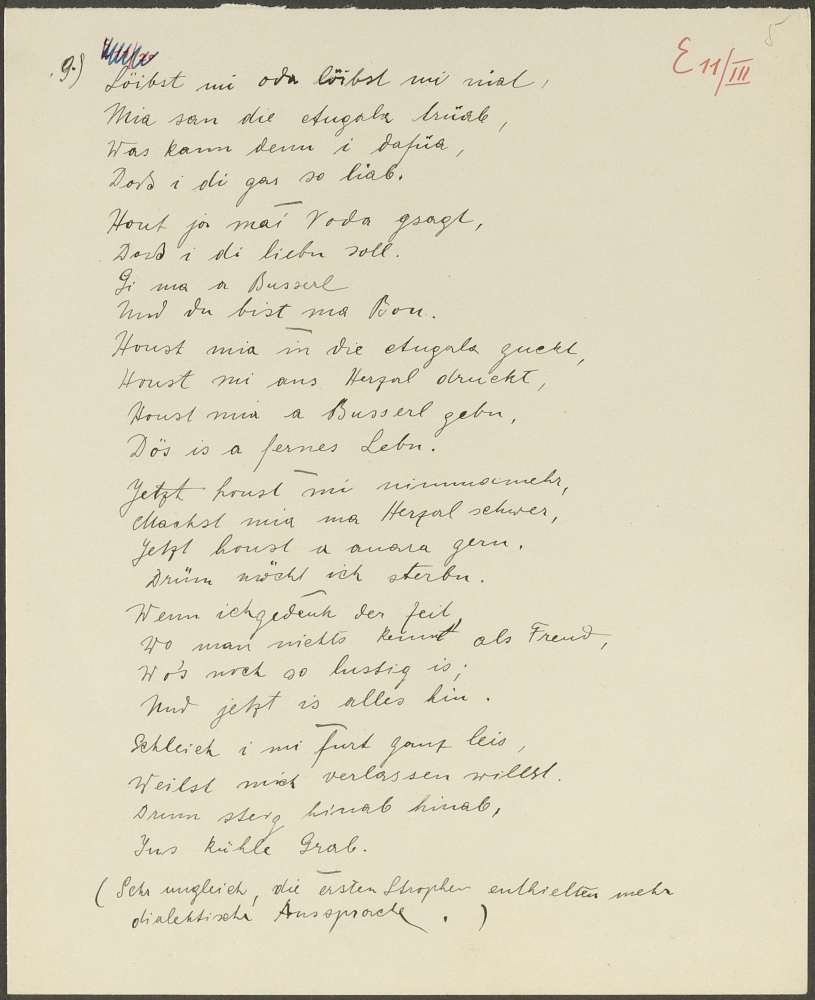 5
E 11/III
9.)
Löibst mi oda löibst mi niat,
Mia san die Augala trüab,
Was kann denn i dafüa,
Dass i di gar so liab.
Hout ja mai Voda gsagt,
Dass i di liebn soll.
Gi ma a Busserl
Und du bist ma Bou.
Houst mia in die Augala guckt,
Houst mi ans Herzal druckt,
Houst mia a Busserl gebn,
Dös is a fernes Lebn.
Jetzt houst mi nimmamehr,
Machst mia ma Herzal schwer,
Jetzt houst a anara gern.
Drüm möcht ich sterbn.
Wenn ich gedenk der Zeit,
Wo man nichts kennt als Freud,
Wo's noch so lustig is;
Und jetzt is alles hin.
Schleich i mi furt ganz leis,
Weilst mich verlassen willst.
Drum steig hinab hinab,
Ins kühle Grab.
(Sehr ungleich, die ersten Strophen enthielten mehr
dialektische Aussprache.)